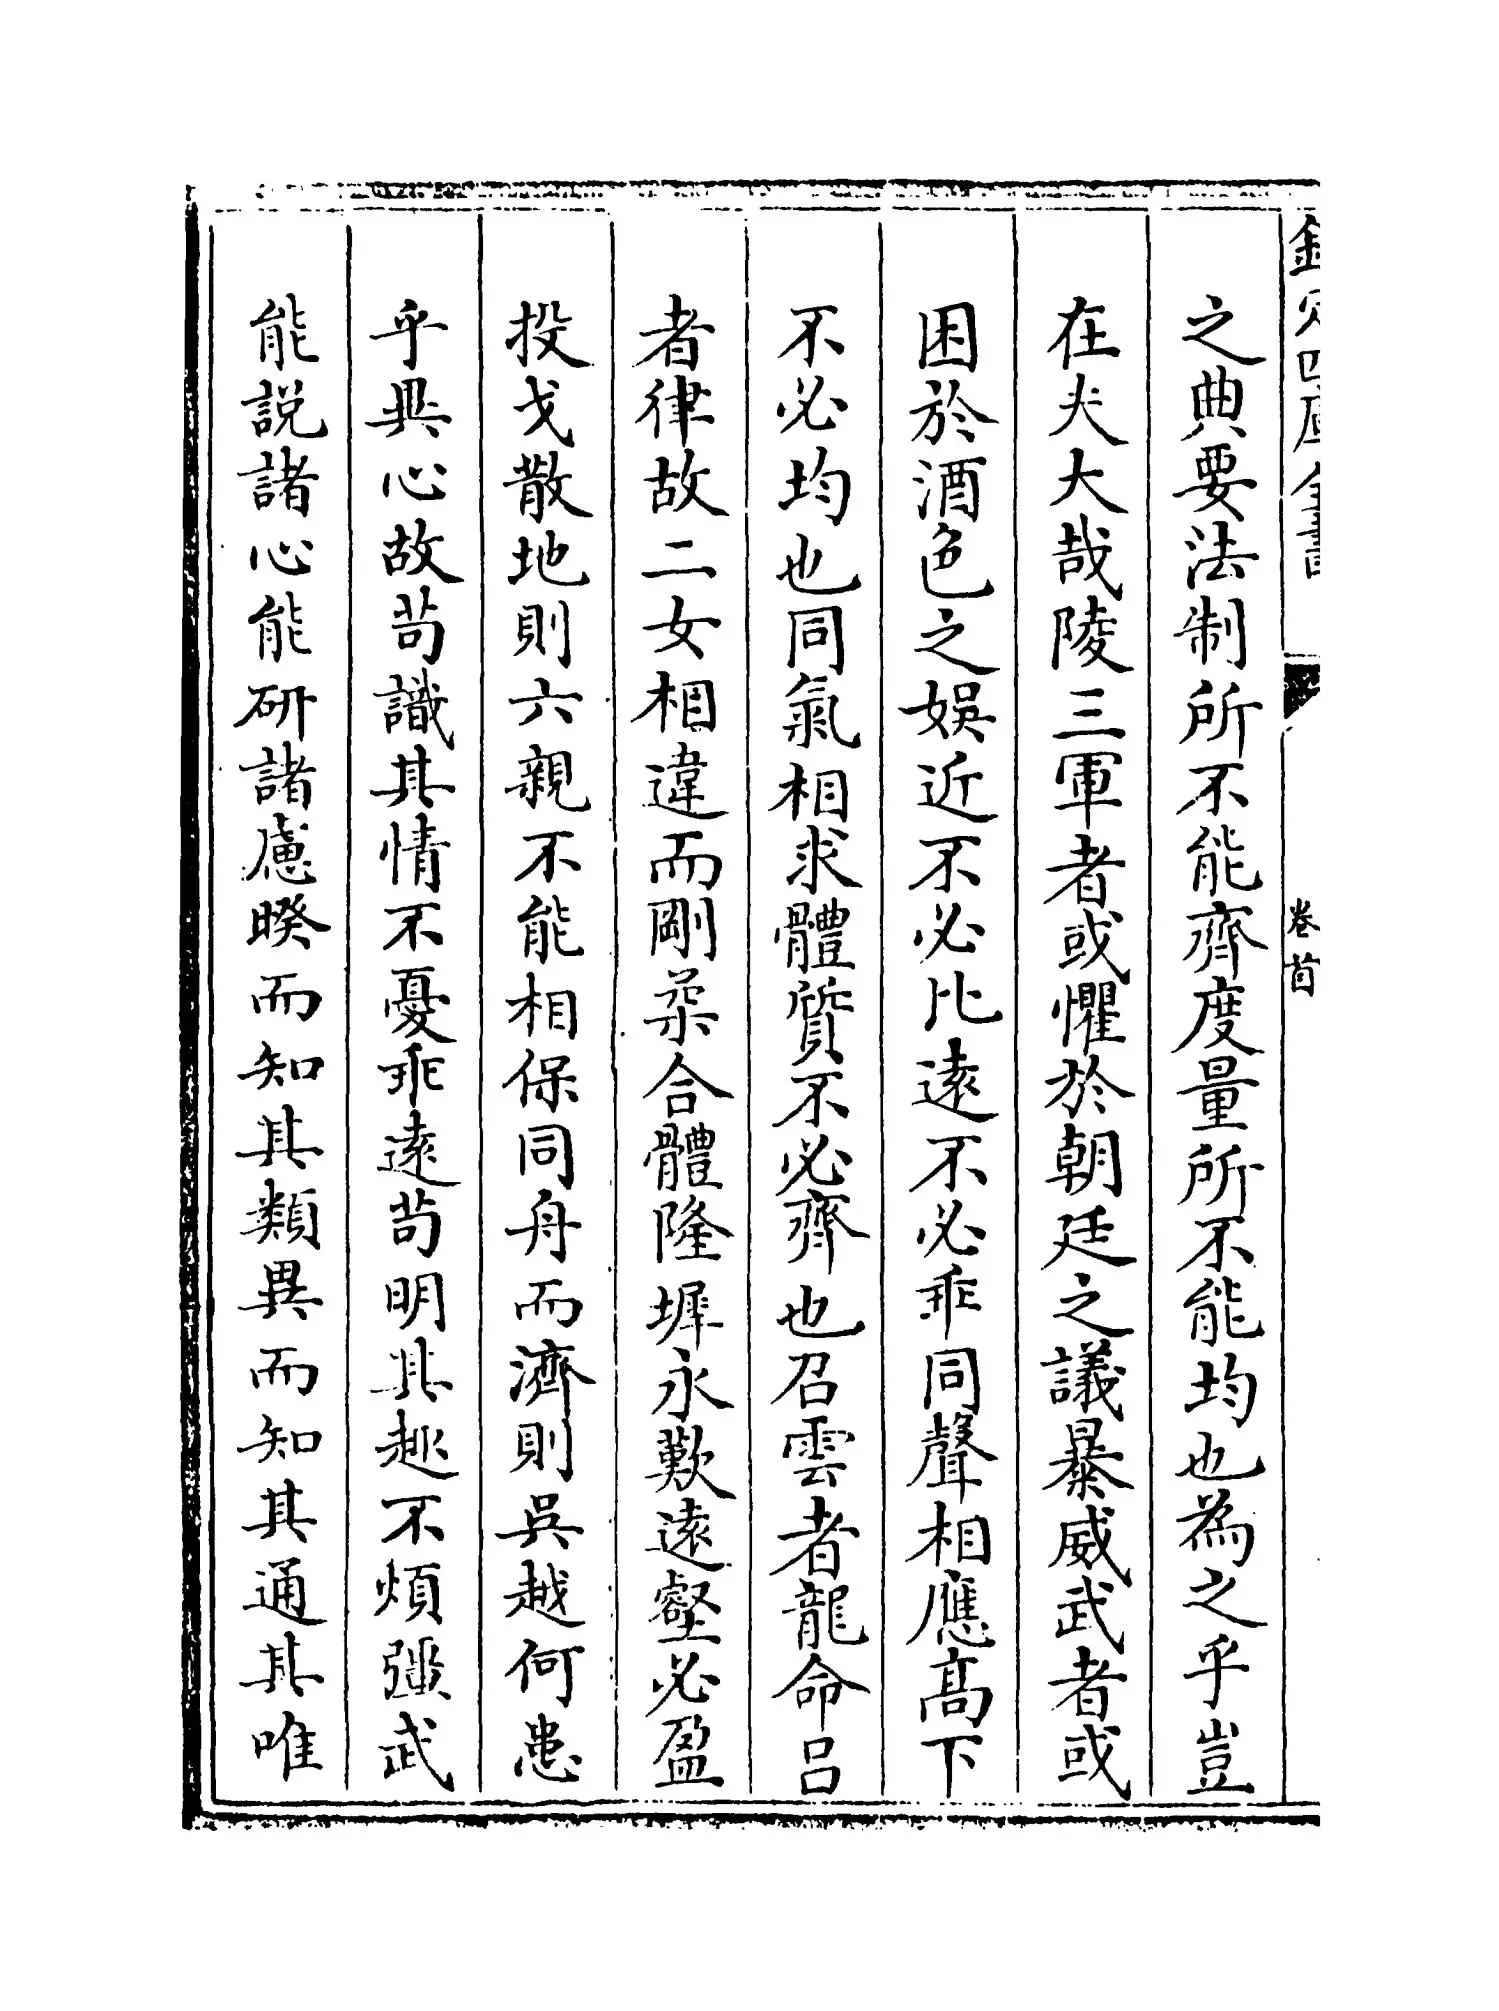 欽定四庫全書
卷首
之典要法制所不能齊度量所不能均也為之乎豈
在夫大哉陵三軍者或懼於朝廷之議暴威武者或
困於酒色之娛近不必比遠不必乖同聲相應髙下
不必均也同氣相求體質不必齊也召雲者龍命吕
者律故二女相違而剛柔合體隆墀永歎遠壑必盈
投戈散地則六親不能相保同舟而濟則吳越何患
乎異心故茍識其情不憂乖遠茍明其趣不煩彊武
能說諸心能研諸慮睽而知其類異而知其通其唯